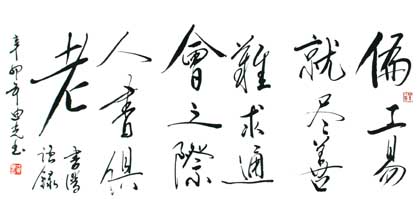 偏工易
就尽善
難求通
會之際
人書俱
老
書譜
語錄
辛卯年